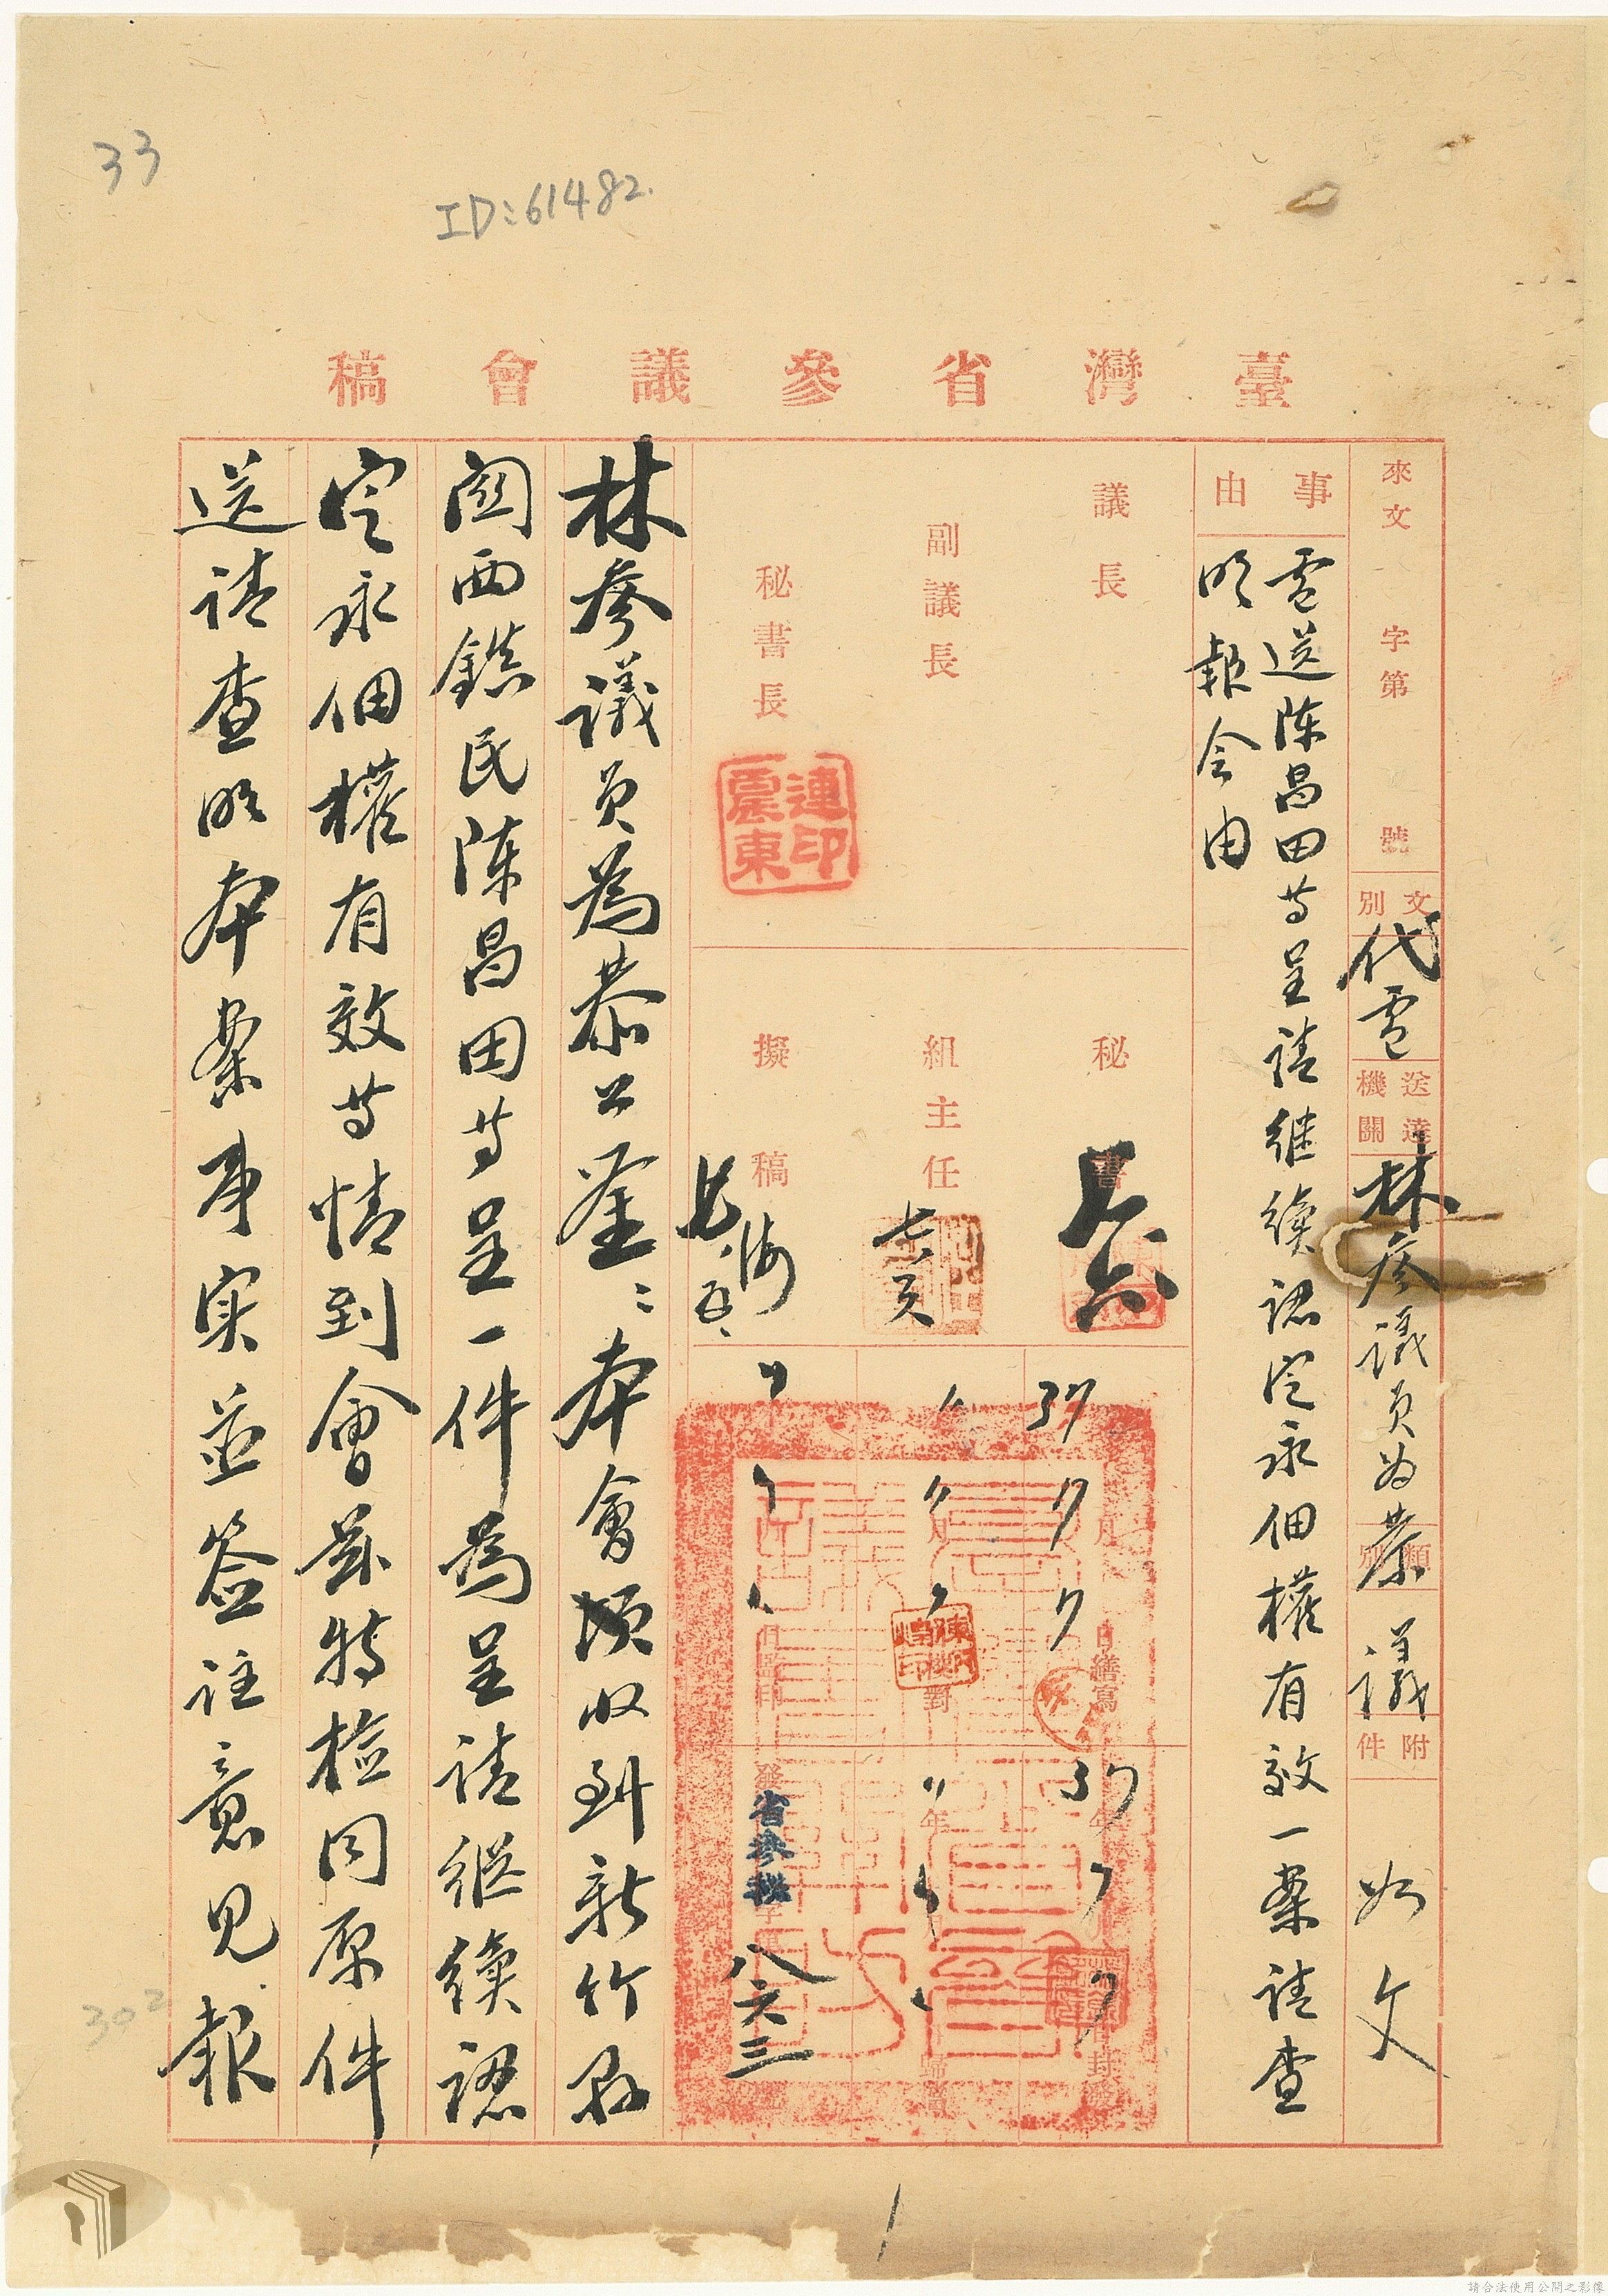 33
ID:61482.
臺灣省參議會稿
來文 字第 號
文別 代電
送達機關 林參議員為恭
類別 議
附件 如文
事由
電送陳昌田等呈請继續認定永佃權有效一案請查
明報會由
議長
副議長
秘書長
連震東印
秘書
組主任
擬稿
七六
37 7 7 日繕寫
對
監印
37年 7 7 封發
年
歸檔
發省參機字第 八六三
林參議員為恭公鑒:本會頃收到新竹縣
関西鎮民陳昌田等呈一件為呈請継續認
定永佃權有效等情到會茲特檢同原件
送請查明本案事实並簽註意見報
302
1
請合法使用公開之影像